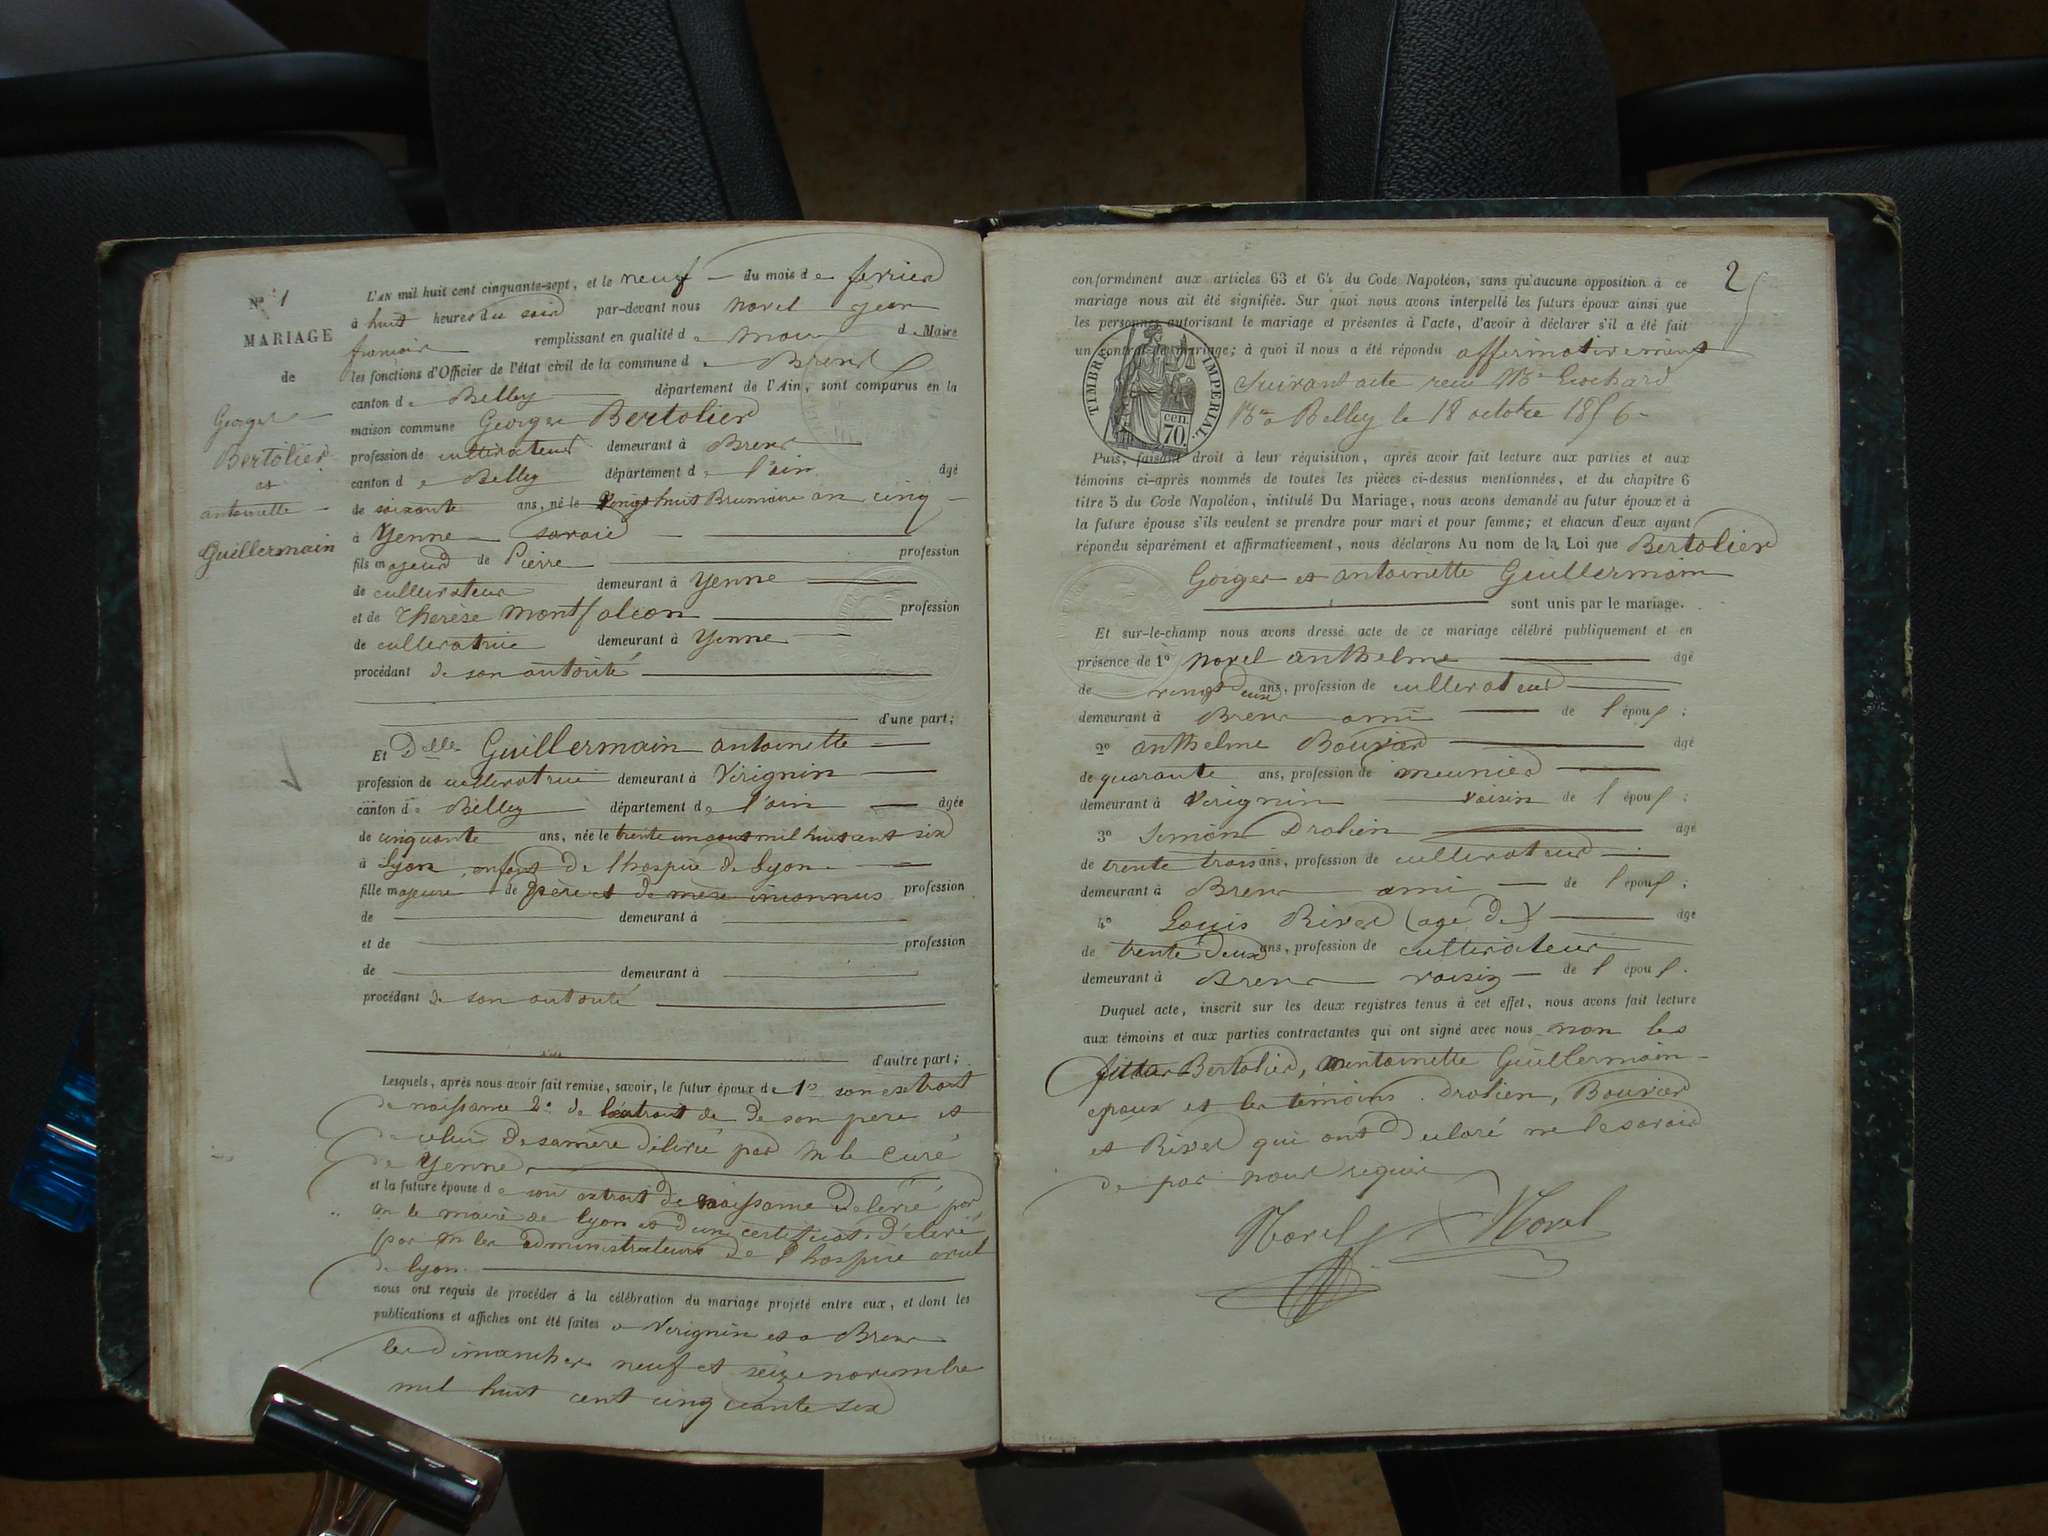 N° 1
MARIAGE
de
George
Bertolier
et
antoinette
Guillermain
L'AN mil huit cent cinquante-sept, et le neuf du mois de fevrier
à huit heures du soir par-devant nous Morel jean
francois remplissant en qualité de Maire de Maire
les fonctions d'Officier de l'état civil de la commune de Brens
canton de Belley département de l'Ain, sont comparus en la
maison commune George Bertolier
profession de cultivateur demeurant à Brens
canton de Belley département de l'ain âgé
de soixante ans, né le vingt huit Brumaire an cinq
à Yenne savoie
fils majeur de Pierre profession
de cultivateur demeurant à Yenne
et de Therèse montfalcon profession
de cultivatrice demeurant à Yenne
procédant de son autorité
d'une part;
Et Delle Guillermain antoinette
profession de cultivatrice demeurant à Virignin
canton de Belley département de l'ain âgée
de cinquante ans, née le trente un aout mil huit cent six
à Lyon enfant de l'hospice de Lyon
fille majeure de père et de mère inconnus profession
de demeurant à
et de profession
de demeurant à
procédant de son autorité
d'autre part;
Lesquels, après nous avoir fait remise, savoir, le futur époux de 1° son extrait
de naissance 2° de l'extrait de de son pere et
de celui de sa mère délivré par M le Curé
de Yenne
et la future épouse de son extrait de naissance delivré par
M le maire de Lyon et d'un certificat délivré
par M les administrateurs de l'hospice civil
de Lyon
nous ont requis de procéder à la célébration du mariage projeté entre eux, et dont les
publications et affiches ont été faites a Virignin et a Brens
les dimanches neuf et seize novembre
mil huit cent cinquante six
2
conformément aux articles 63 et 64 du Code Napoléon, sans qu'aucune opposition à ce
mariage nous ait été signifiée. Sur quoi nous avons interpellé les futurs époux ainsi que
les personnes autorisant le mariage et présentes à l'acte, d'avoir à déclarer s'il a été fait
un contrat de mariage; à quoi il nous a été répondu affirmativement
suivant acte recu Me
à Belley le 18 octobre 1856
TIMBRE IMPERIAL
70 cen.
Puis, faisant droit à leur réquisition, après avoir fait lecture aux parties et aux
témoins ci-après nommés de toutes les pièces ci-dessus mentionnées, et du chapitre 6
titre 5 du Code Napoléon, intitulé Du Mariage, nous avons demandé au futur époux et à
la future épouse s'ils veulent se prendre pour mari et pour femme; et chacun d'eux ayant
répondu séparément et affirmativement, nous déclarons Au nom de la Loi que Bertolier
Goiger et antoinette Guillermain
sont unis par le mariage.
Et sur-le-champ nous avons dressé acte de ce mariage célébré publiquement et en
présence de 1° Morel anthelme âgé
de vingt deux ans, profession de cultivateur
demeurant à Brens ami de l'époux;
2° anthelme Bouvier âgé
de quarante ans, profession de meunier
demeurant à Virignin voisin de l'époux;
3° Simon Drolien âgé
de trente trois ans, profession de cultivateur
demeurant à Brens ami de l'époux;
4° Louis Rivel (age de) âgé
de trente deux ans, profession de cultivateur
demeurant à Brens voisin de l'époux.
Duquel acte, inscrit sur les deux registres tenus à cet effet, nous avons fait lecture
aux témoins et aux parties contractantes qui ont signé avec nous non les
Bertolier, antoinette Guillermain
epoux et les témoins Drolien, Bouvier
et Rivel qui ont declaré ne le savoir
de par nous requis
Morel Morel